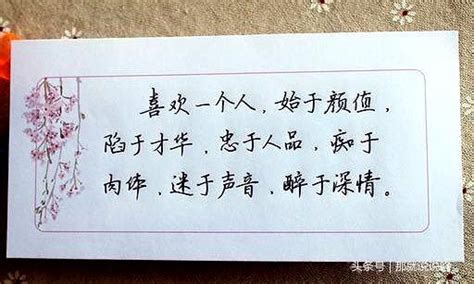 喜欢一个人，始于颜值，
陷于才华，忠于人品，痴于
肉体，迷于声音，醉于深情。
头条号